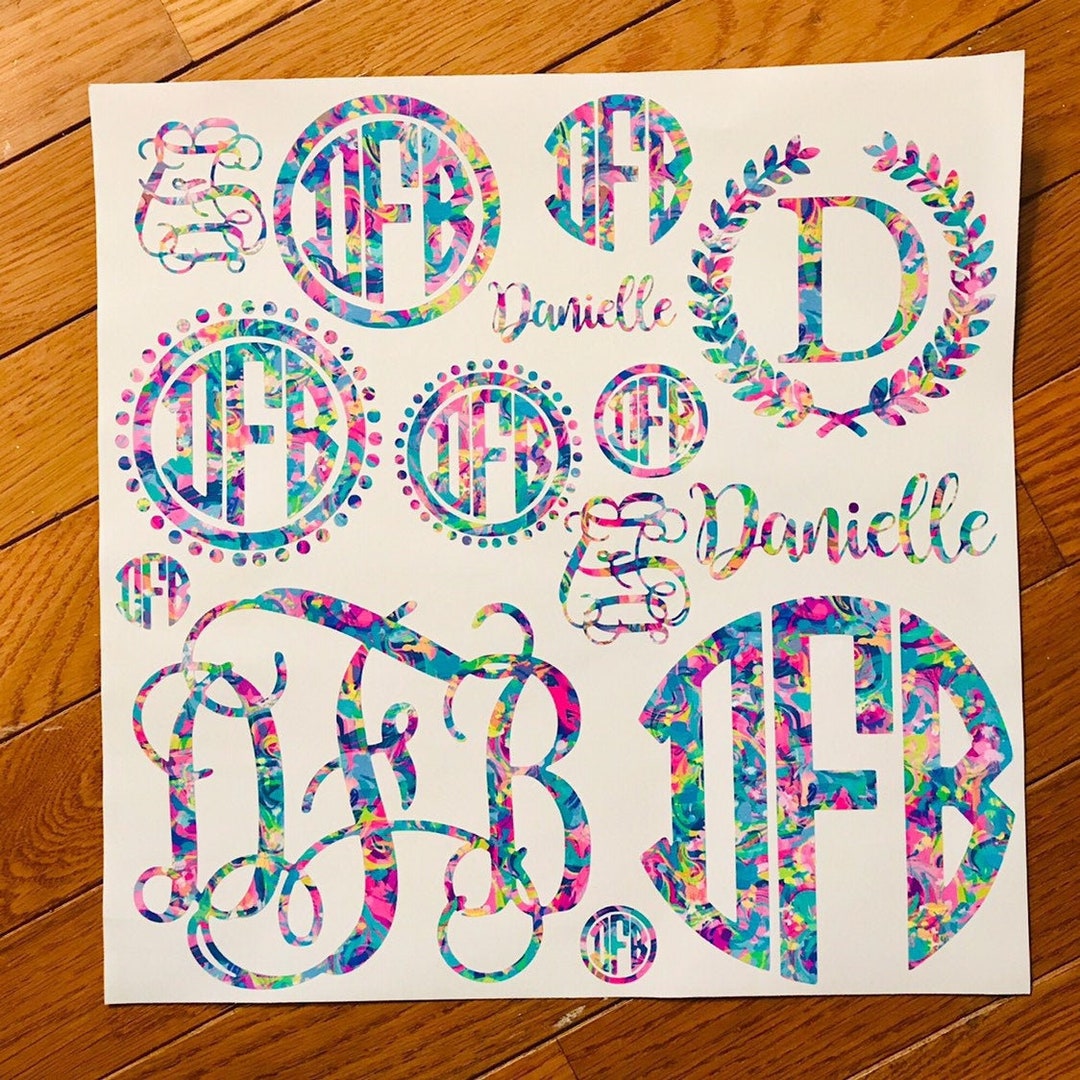 DFB
DFB
DFB
D
Danielle
DFB
DFB
DFB
Danielle
DFB
DFB
DFB
DFB
DFB